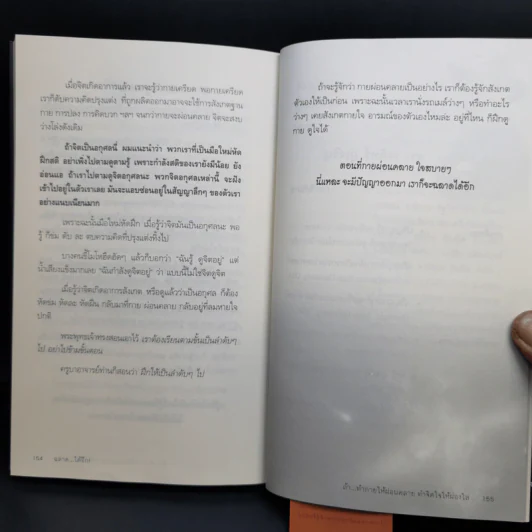 เมื่อจิตเกิดอาการแล้ว เราจะรู้ว่ากายเครียด พอกายเครียด
เราก็ดับความคิดปรุงแต่ง ที่ถูกผลิตออกมาอาจจะใช้การสังเกตฐาน
กาย การปลง การตัดบท ฯลฯ จนกว่ากายจะผ่อนคลาย จิตจะสงบ
ว่างโล่งดังเดิม
ถ้าจิตเป็นอกุศลนี่ ผมแนะนำว่า พวกเราที่เป็นมือใหม่หัด
ฝึกสติ อย่าเพิ่งไปตามดูตามรู้ เพราะกำลังสติของเรายังมีน้อย ยัง
อ่อนแอ ถ้าเราไปตามดูจิตอกุศลเหล่านี้ จะฝัง
เข้าไปอยู่ในตัวเราเลย มันจะแอบซ่อนอยู่ในสัญญาลึกๆ ของตัวเรา
อย่างแนบเนียนมาก
เพราะฉะนั้นมือใหม่หัดฝึก เมื่อรู้ว่าจิตมันเป็นอกุศลนะ พอ
รู้ ก็ข่ม ดับ ละ ตบความคิดที่ปรุงแต่งทิ้งไป
บางคนขี้โมโหฮึดฮัดๆ แล้วก็บอกว่า "ฉันรู้ ดูจิตอยู่" แต่
น้ำเสียงแข็งมากเลย "ฉันกำลังดูจิตอยู่" ว่า แบบนี้ไม่ใช่จิตดูจิต
เมื่อรู้ว่าจิตเกิดอาการสังเกต หรือดูแล้วว่าเป็นอกุศล ก็ต้อง
หัดข่ม หัดละ หัดฝืน กลับมาที่กาย ผ่อนคลาย กลับอยู่ที่ลมหายใจ
ปกติ
พระพุทธเจ้าทรงสอนเอาไว้ เราต้องเรียนตามขั้นเป็นลำดับๆ
ไป อย่าไปข้ามขั้นตอน
ครูบาอาจารย์ท่านก็สอนว่า ฝึกให้เป็นลำดับๆ ไป
184 ฉลาด...ได้อีก!
ถ้าจะรู้จักว่า กายผ่อนคลายเป็นอย่างไร เราก็ต้องรู้จักสังเกต
ตัวเองให้เป็นก่อน เพราะฉะนั้นเวลาเรานั่งรถเมล์ว่างๆ หรือทำอะไร
ว่างๆ เคยสังเกตกายใจ อารมณ์ของตัวเองไหมล่ะ อยู่ที่ไหน ก็ฝึกดู
กาย ดูใจได้
ตอนที่กายผ่อนคลาย ใจสบายๆ
นี่แหละ จะมีปัญญาออกมา เราก็จะฉลาดได้อีก
เก้า...ทำกายให้ผ่อนคลาย ทำจิตใจให้ผ่องใส 185